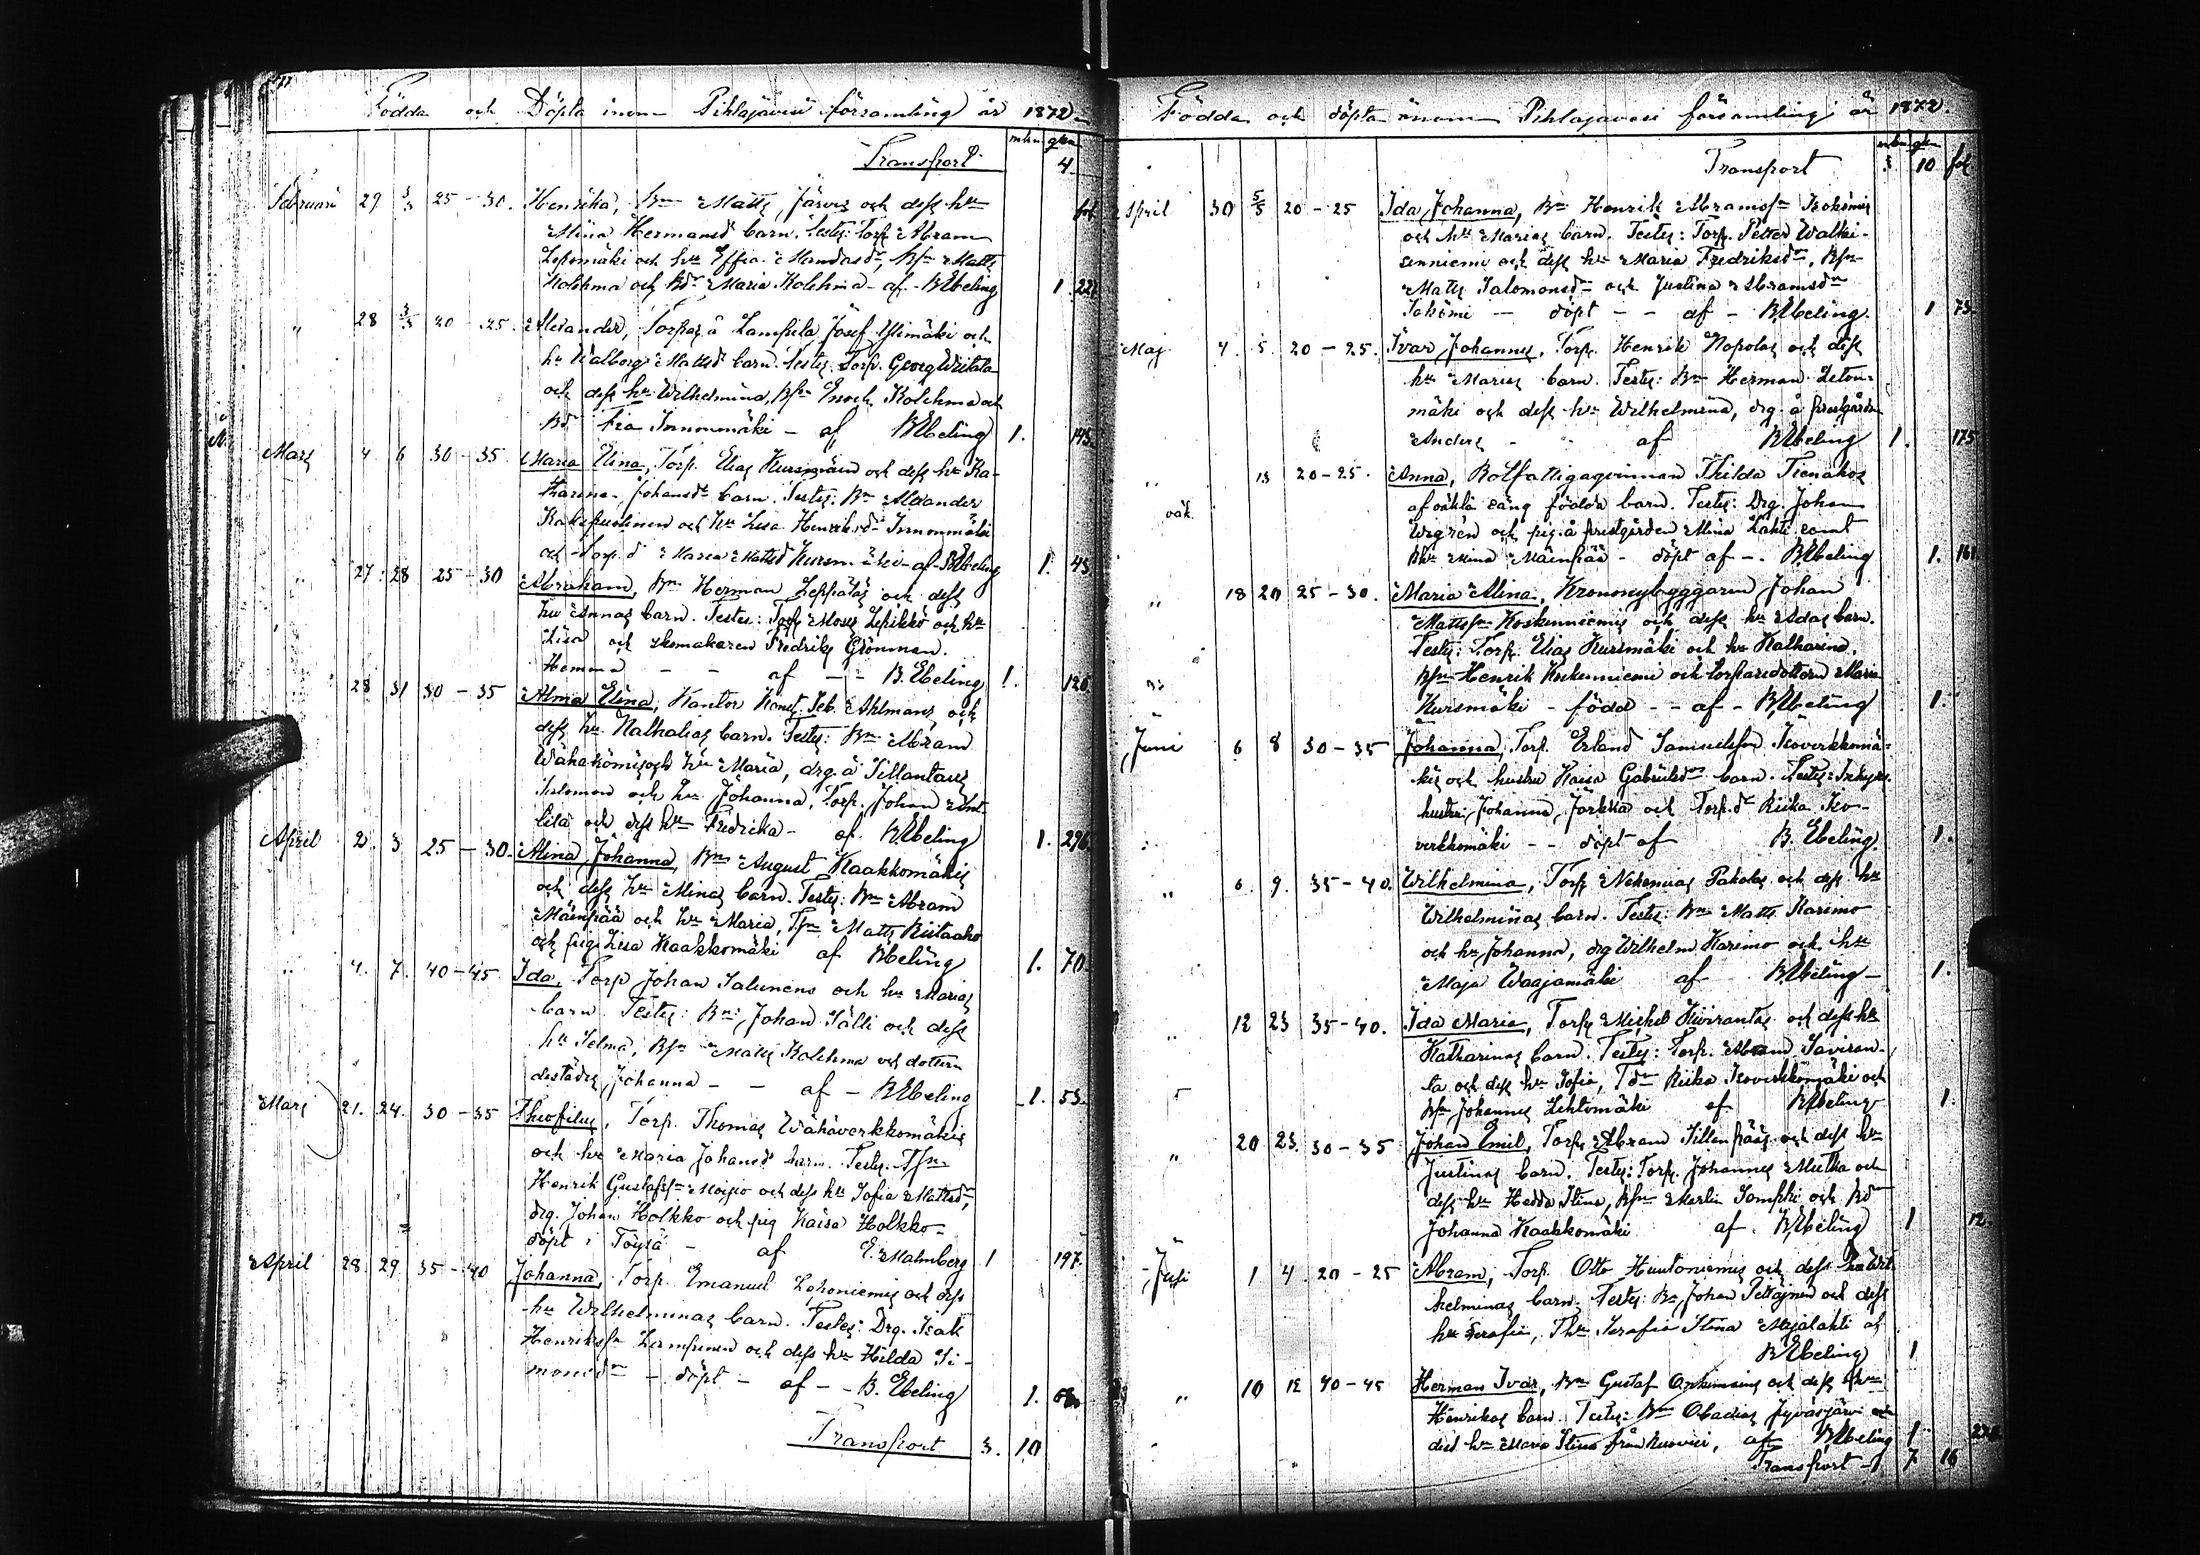 Födda och Döpta inom Pihlajavesi församling år 1872.
mkn qkn
Transport 4
Februari 29 3/3 25-30. Henrika, Bn Matts Järvis och dess hu
fol
Miina Hermansd barn. Testes: Torp Abram
Lepomäki och hu Effia Mandasdr, Bsn Matts
Kolehma och Bdr Maria Kolehma - af - B Ebeling 1 221
" 28 3/3 20-25. Alexander, Torpas å Lampila Josef Ylimäki och
hu Walborg Mattsd barn. Testes. Torp. Georg Wiitala
och dess hu Wilhelmina, Bsn Enoch Kolehma och
Bd Fia Innonmäki - af B Ebeling 1.
Mars 4 6 30-35. Maria Elina, Torp. Elias Kursmäen och dess hu Ka-
tharina Johansdr barn. Testes: Bn Alexander
och hu Lisa Henriksdr
och Torp.d Maria Mattsd Kursmäki - af - B Ebeling 1. 43.
" 27. 28 25-30 Abraham, Bn Herman Leppälas och dess
hu Annas barn. Testes: Torp Moses Lepikkö och hu
Lisa och skomakaren Fredriks Grönman.
Hemma - - af - - B. Ebeling 1. 120
28 31 30-35 Alma Elina, Kantor Konst. Seb. Ahlmans och
dess hu Nathalias barn. Testes: Bn Abram
Wähäkömis och hu Maria, drg. å Sillantaus
Salomon och hu Johanna, Torp. Johan Ant-
tila och dess hu Fredrika - af. B Ebeling 1. 296
April 2. 3 25-30. Mina Johanna, Bn August Kaakkomäkis
och dess hu Minas barn. Testes: Bn Abram
Mäenpää och hu Maria, Tsn Matts Riitaaho
och pig. Lisa Kaakkomäki af B Ebeling 1. 70.
" 4. 7. 40-45 Ida, Torp Johan Salunens och hu Marias
barn. Testes: Bn: Johan Sälli och dess
hu Selma, Bsn Matts Kolehma och dottern
Johanna - - af - B Ebeling 1. 53.
Mars 21. 24. 30-35 Theofilus, Torp. Thomas Wähäverkkomäkis
och hu Maria Johansd barn. Testes. Tsn
Henrik Gustafsn Moisio och dess hu Sofia Mattsdr,
drg. Johan Holkko och pig Kaisa Holkko -
döpt i Töysä - af E. Malmberg 1 197.
April 28. 29 35-40 Johanna, Torp. Emanuel Lehoniemis och dess
hu Wilhelminas barn. Testes: Drg. Isak
Henriksn Lampinen och dess hu Hilda Si-
monsdr - döpt - af - - B. Ebeling 1.
Transport 3. 10
Födda och döpta inom Pihlajavesi församling år 1872.
mkn qkn
Transport 3 10 fol
April 30 5/5 20-25 Ida Johanna, Bn Henrik Abramsn
och hu Marias barn. Testes: Torp. Petter Walki-
senniemi och dess hu Maria Fredriksdr, Bsn
Matts Salomonsd och Justina Abramsdr
- döpt - - af - B Ebeling. 1 73.
Maj 4. 5. 20-25. Ivar Johannes, Torp. Henrik Nopolas och dess
hu Marias barn. Testes: Bn Herman Leton-
mäki och dess hu Wilhelmina, drg. å prestgården
Anders - af B Ebeling 1. 175
" 13 20-25. Anna, Rotfattigqvinnan Thilda Tienahos
oäk. af oäkta säng födda barn. Testes: Drg. Johan
och pig. å prestgården Mina Lahti samt
Mina Mäenpää - döpt af - . B Ebeling 1. 161
" 18 20 25-30. Maria Alina, Krononybyggaren Johan
Mattssn Koskenniemis och dess hu Adas barn.
Testes: Torp. Elias Kursmäki och hu Katharina.
Bsn Henrik Koskenniemi och torparedottern Maria
Kursmäki - född - - af - B Ebeling 1.
Juni 6 8 30-35 Johanna, Torp. Erland Samuelssn Isoverkkomä-
kis och hustru Kaisa Gabrielsdr barn. Testes: Inhys.
hustru Johanna Jorkka och Torp.dr Riika Iso-
verkkomäki - - döpt af B. Ebeling. 1.
" 6. 9. 35-40. Wilhelmina, Torp Nehemias Pakolas och dess hu
Wilhelminas barn. Testes: Bn Matts Karimo
och hu Johanna, drg Wilhelm Karimo och hu
Maja Waajamäki af B Ebeling - 1.
" 12 23 35-40. Ida Maria, Torp Michel Kivirantas och dess hu
Katharinas barn. Testes: Torp. Abram Saviran-
ta och dess hu Sofia, Tdr Riika Isoverkkomäki och
Bsn Johannes Lehtomäki af B Ebeling 1.
" 20 23. 30-35 Johan Emil, Torp Abram Sillanpääs och dess hu
Justinas barn. Testes: Torp. Johannes Mutka och
dess hu Hedda Stina, Bsn Martin Sompki och Bdr
Johanna Kaakkomäki af. B Ebeling 1 12.
Juli 1 4. 20-25 Abram, Torp. Otto Huutoniemis och dess hu Wil-
helminas barn. Testes: Bn Johan Petäjnen och dess
hu Serafia, Thr Serafia Stina Majalahti af
B Ebeling 1
" 10 12 40-45 Herman Ivar, Bn Gustaf och dess hu
Henrikas barn. Testes: Bn Obadias Jyväsjärvi och
dess hu Maria Stina från Ruovesi, af B Ebeling 1
Transport - 7 16